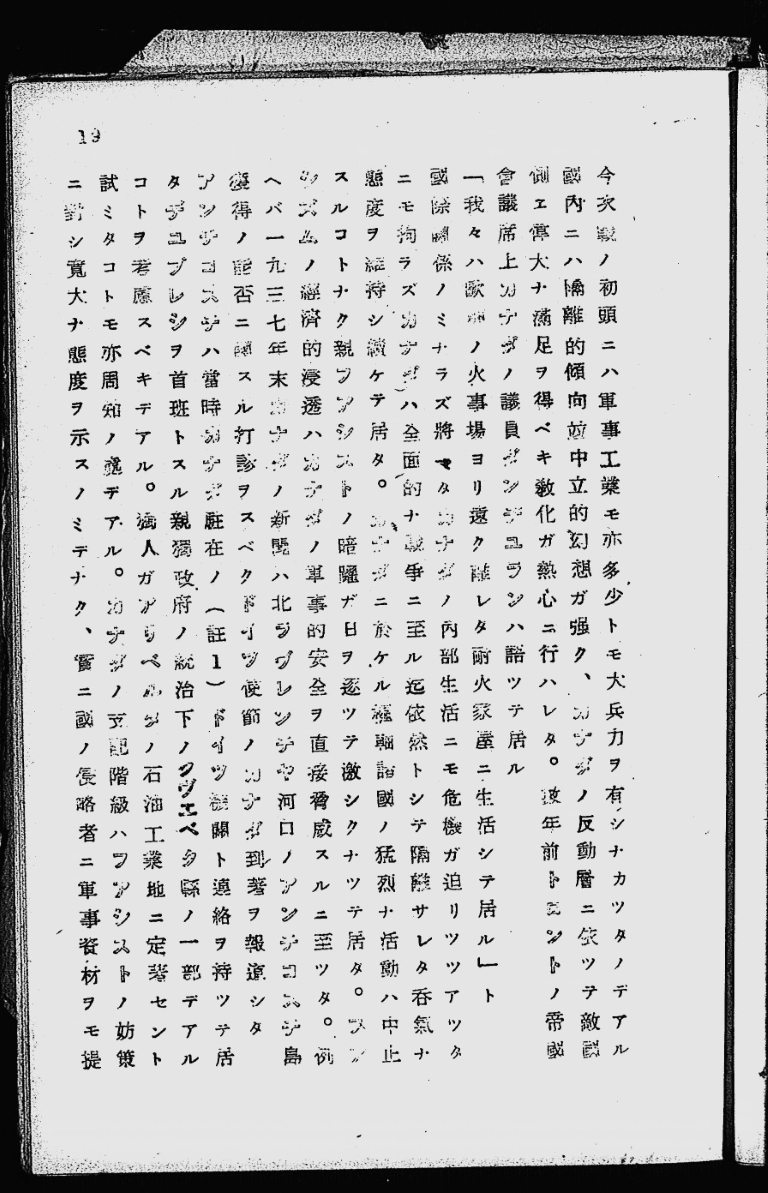 19
今次戰ノ初頭ニハ軍事工業モ亦多少トモ大兵力ヲ有シナカツタノデアル
國內ニハ隔離的傾向竝中立的幻想ガ强ク、カナダノ反動層ニ依ツテ敵國
側エ偉大ナ滿足ヲ得ベキ敎化ガ熱心ニ行ハレタ。數年前トロントノ帝國
會議席上カナダノ議員ダンヂユランハ語ツテ居ル
「我々ハ歐洲ノ火事場ヨリ遠ク離レタ耐火家屋ニ生活シテ居ル」ト
國際關係ノミナラズ將マタカナダノ內部生活ニモ危機ガ迫リツツアツタ
ニモ拘ラズカナダハ全面的ナ戰爭ニ至ル迄依然トシテ隔離サレタ呑氣ナ
態度ヲ維持シ續ケテ居タ。カナダニ於ケル樞軸諸國ノ猛烈ナ活動ハ中止
スルコトナク親フアシストノ暗躍ガ日ヲ逐ツテ激シクナツテ居タ。フア
シズムノ經濟的浸透ハカナダノ軍事的安全ヲ直接脅威スルニ至ツタ。例
ヘバ一九三七年末カナダノ新聞ハ北ラヴレンチヤ河口ノアンチコスチ島
獲得ノ能否ニ關スル打診ヲスベクドイツ使節ノカナダ到著ヲ報道シタ
アンチコスチハ當時カナダ駐在ノ(註1)ドイツ機關ト連絡ヲ持ツテ居
タデユプレシヲ首班トスル親獨政府ノ統治下ノクヴエベク縣ノ一部デアル
コトヲ考慮スベキデアル。獨人ガアリベルタノ石油工業地ニ定著セント
試ミタコトモ亦周知ノ處デアル。カナダノ支配階級ハフアシストノ妨策
ニ對シ寬大ナ態度ヲ示スノミデナク、實ニ國ノ侵略者ニ軍事資材ヲモ提